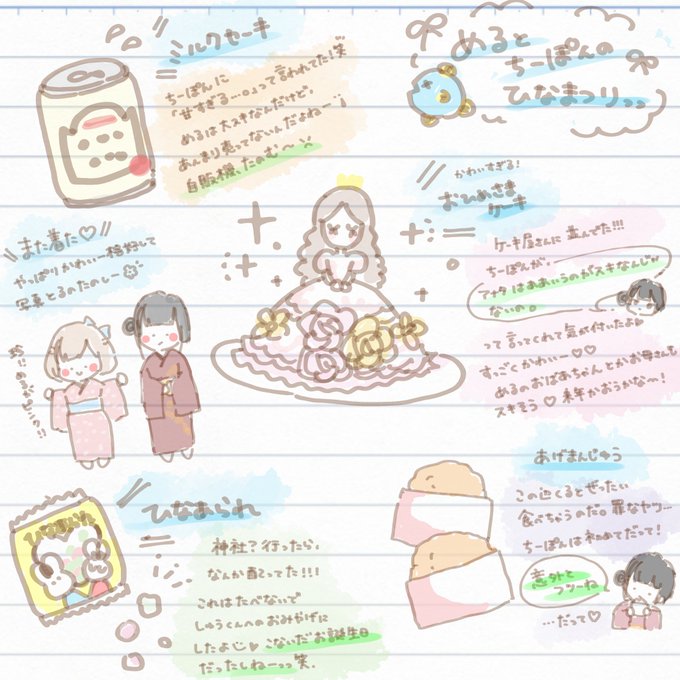 めると
ちーぽんの
ひなまつりっっ
ミルクセーキ
ちーぽんに
「甘すぎる…。」って言われてた!笑
めるは大スキなんだけど、
あんまり売ってないんだよねー
自販機、たのむ〜
かわいすぎる!
おひめさま
ケーキ
ケーキ屋さんに並んでた!!!
ちーぽんが、
アナタはああいうのがスキなんじゃ
ないの。
って言ってくれて気が付いたよ
すっごくかわいー♡♡
めるのおばあちゃんとかお母さんも
スキそう♡来年かおうかな〜!
また着た♡
やっぱりかわいー格好して
写真とるのたのしー
めるがピンク!!
ひなあられ
ひなあられ
神社?行ったら、
なんか配ってた!!!
これはたべないで
しゅうくんへのおみやげに
したよ♡こないだお誕生日
だったしねーっっ笑.
あげまんじゅう
この辺くるとぜったい
食べちゃうのだ。罪なヤツ…
ちーぽんは初めてだって!
意外と
フツーね
…だって♡